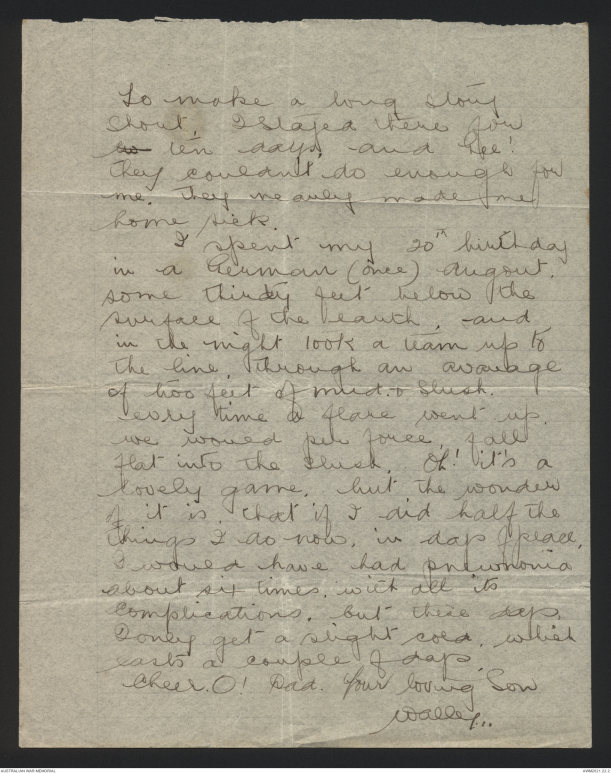 To make a long story
short, I stayed there for
to ten days, and Gee!
they couldn't do enough for
me. They nearly made me
home sick.
I spent my 20th birthday
in a German (once) dugout.
some thirty feet below the
surface of the earth, and
in the night took a team up to
the line, through an avarage
of two feet of mud. & slush.
every time a flare went up.
we would per force, fall
flat into the slush. Oh! it's a
lovely game, but the wonder
of it is, that if I did half the
things I do now, in days of peace,
I would have had pneumonia
about six times, with all its
complications, but these days
I only get a slight cold, which
lasts a couple of days.
Cheer. O! Dad. Your loving Son
Walley..
AUSTRALIAN WAR MEMORIAL